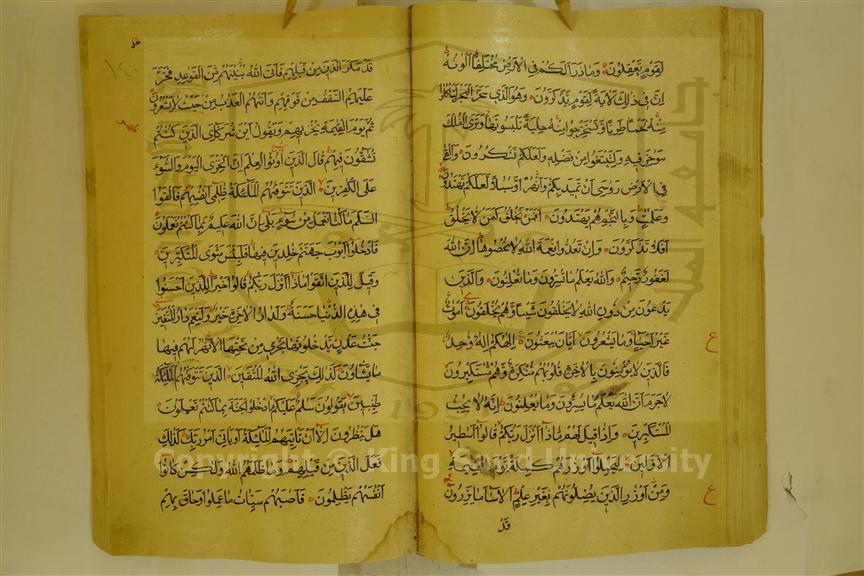 لقوم يعقلون وما ذرا لكم في الارض مختلفا الونه
ان في ذلك لاية لقوم يذكرون وهو الذي سخر البحر لتاكلوا
منه لحما طريا وتستخرجوا منه حلية تلبسونها وترى الفلك
مواخر فيه ولتبتغوا من فضله ولعلكم تشكرون والقى
في الارض روسى ان تميد بكم وانهرا وسبلا لعلكم تهتدون
وعلمت وبالنجم هم يهتدون افمن يخلق كمن لا يخلق
افلا تذكرون وان تعدوا نعمة الله لا تحصوها ان الله
لغفور رحيم والله يعلم ما تسرون وما تعلنون والذين
يدعون من دون الله لا يخلقون شيئا وهم يخلقون اموت
غير احياء وما يشعرون ايان يبعثون الهكم اله وحد
فالذين لا يؤمنون بالاخرة قلوبهم منكرة وهم مستكبرون
لا جرم ان الله يعلم ما يسرون وما يعلنون انه لا يحب
المستكبرين واذا قيل لهم ماذا انزل ربكم قالوا اسطير
الاولين ليحملوا اوزرهم كاملة يوم القيمة
ومن اوزار الذين يضلونهم بغير علم الا ساء ما يزرون
قد
قد مكر الذين من قبلهم فاتى الله بنينهم من القواعد فخر
عليهم السقف من فوقهم واتهم العذاب من حيث لا يشعرون
ثم يوم القيمة يخزيهم ويقول اين شركاي الذين كنتم
تشقون فيهم قال الذين اوتوا العلم ان الخزى اليوم والسوء
على الكفرين الذين تتوفهم الملئكة ظلمى انفسهم فالقوا
السلم ما كنا نعمل من سوء بلى ان الله عليم بما كنتم تعملون
فادخلوا ابوب جهنم خلدين فيها فلبئس مثوى المتكبرين
وقيل للذين اتقوا ماذا انزل ربكم قالوا خيرا للذين احسنوا
في هذه الدنيا حسنة ولدار الاخرة خير ولنعم دار المتقين
جنت عدن يدخلونها تجرى من تحتها الانهر لهم فيها
ما يشاؤن كذلك يجزى الله المتقين الذين تتوفهم الملئكة
طيبين يقولون سلم عليكم ادخلوا الجنة بما كنتم تعملون
هل ينظرون الا ان تاتيهم الملئكة او ياتى امر ربك كذلك
فعل الذين من قبلهم وما ظلمهم الله ولكن كانوا
انفسهم يظلمون فاصبهم سيئات ما عملوا وحاق بهم
Copyright © King Saud University